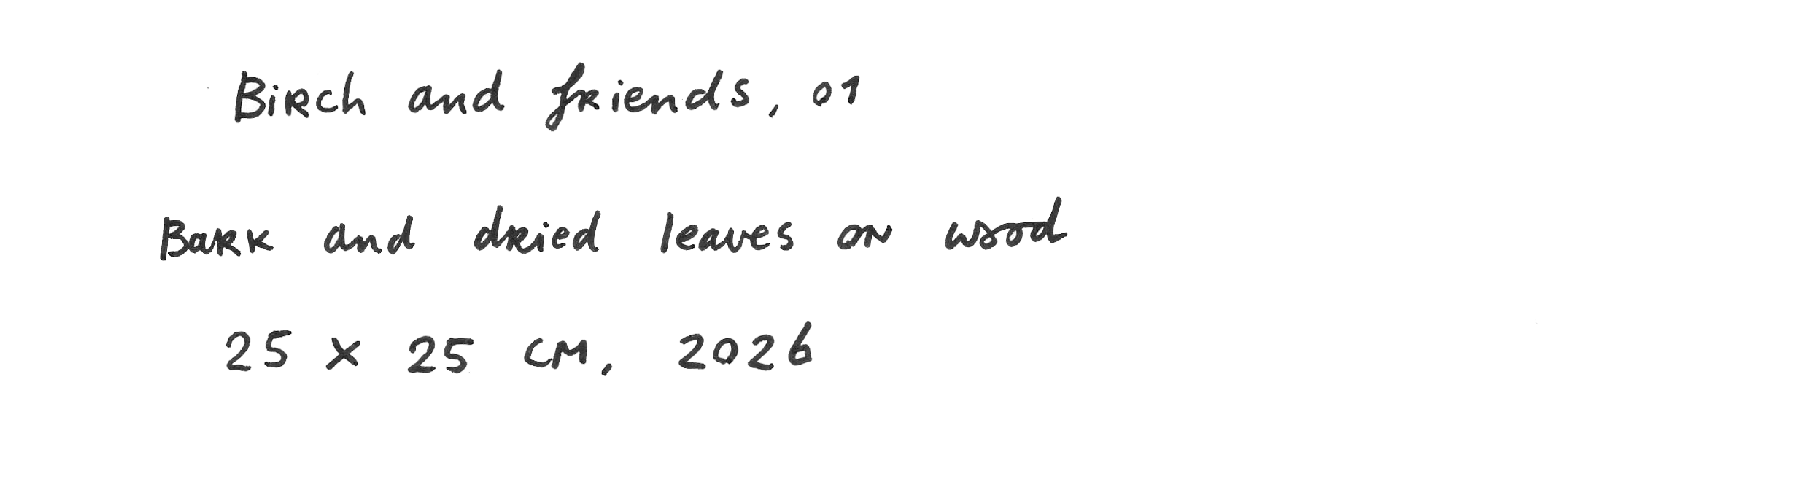 Birch and friends, 01
Bark and dried leaves on wood
25 x 25 cm, 2026